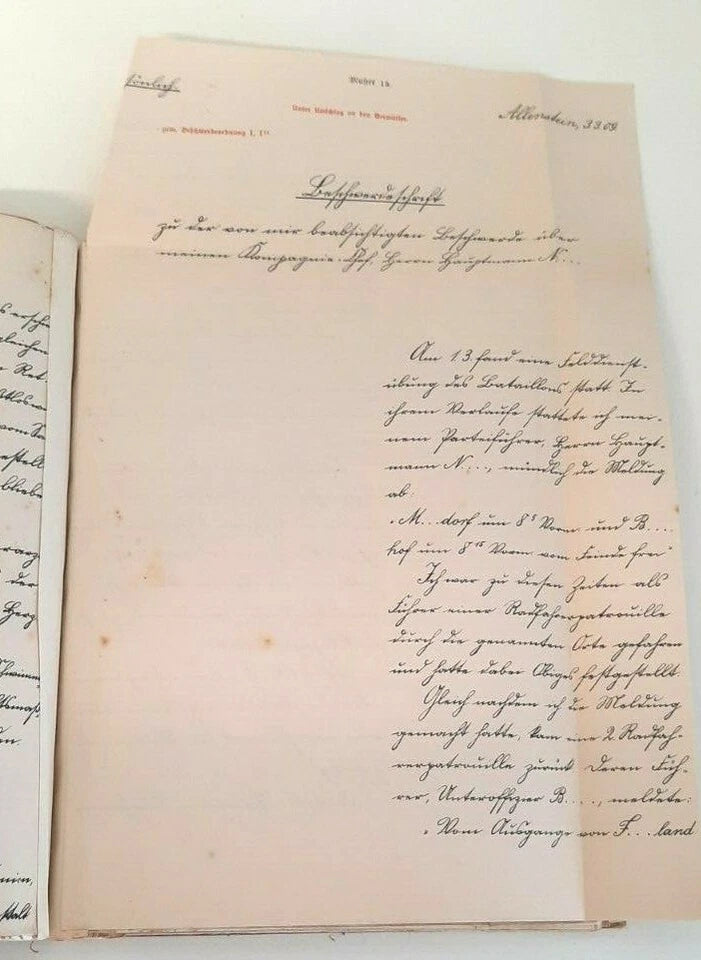 sönlich.
Muster 15.
Unter Umschlag an den Vermittler.
zum Beschwerdeordnung I, 1
Allenstein, 3.3.09
Beschwerdeschrift
zu der von mir beabsichtigten Beschwerde über
meinen Kompagnie-Chef, Herrn Hauptmann N....
Am 1.3. fand eine Felddienst-
übung des Bataillons statt. In
ihrem Verlaufe stattete ich mei-
nem Parteiführer, Herrn Haupt-
mann N...., mündlich die Meldung
ab:
"M...dorf um 8⁵ Vorm. und B....
hof um 8¹⁵ Vorm. vom Feinde frei"
Ich war zu diesen Zeiten als
Führer einer Radfahrerpatrouille
durch die genannten Orte gefahren
und hatte dabei Obiges festgestellt.
Gleich nachdem ich die Meldung
gemacht hatte, kam eine 2. Radfah-
rerpatrouille zurück. Deren Füh-
rer, Unteroffizier B...., meldete:
"Vom Ausgange von F...land
gleichen
Ret
vom
gestell
bliebe
der
Herz
Schwimm-
tsmaß-